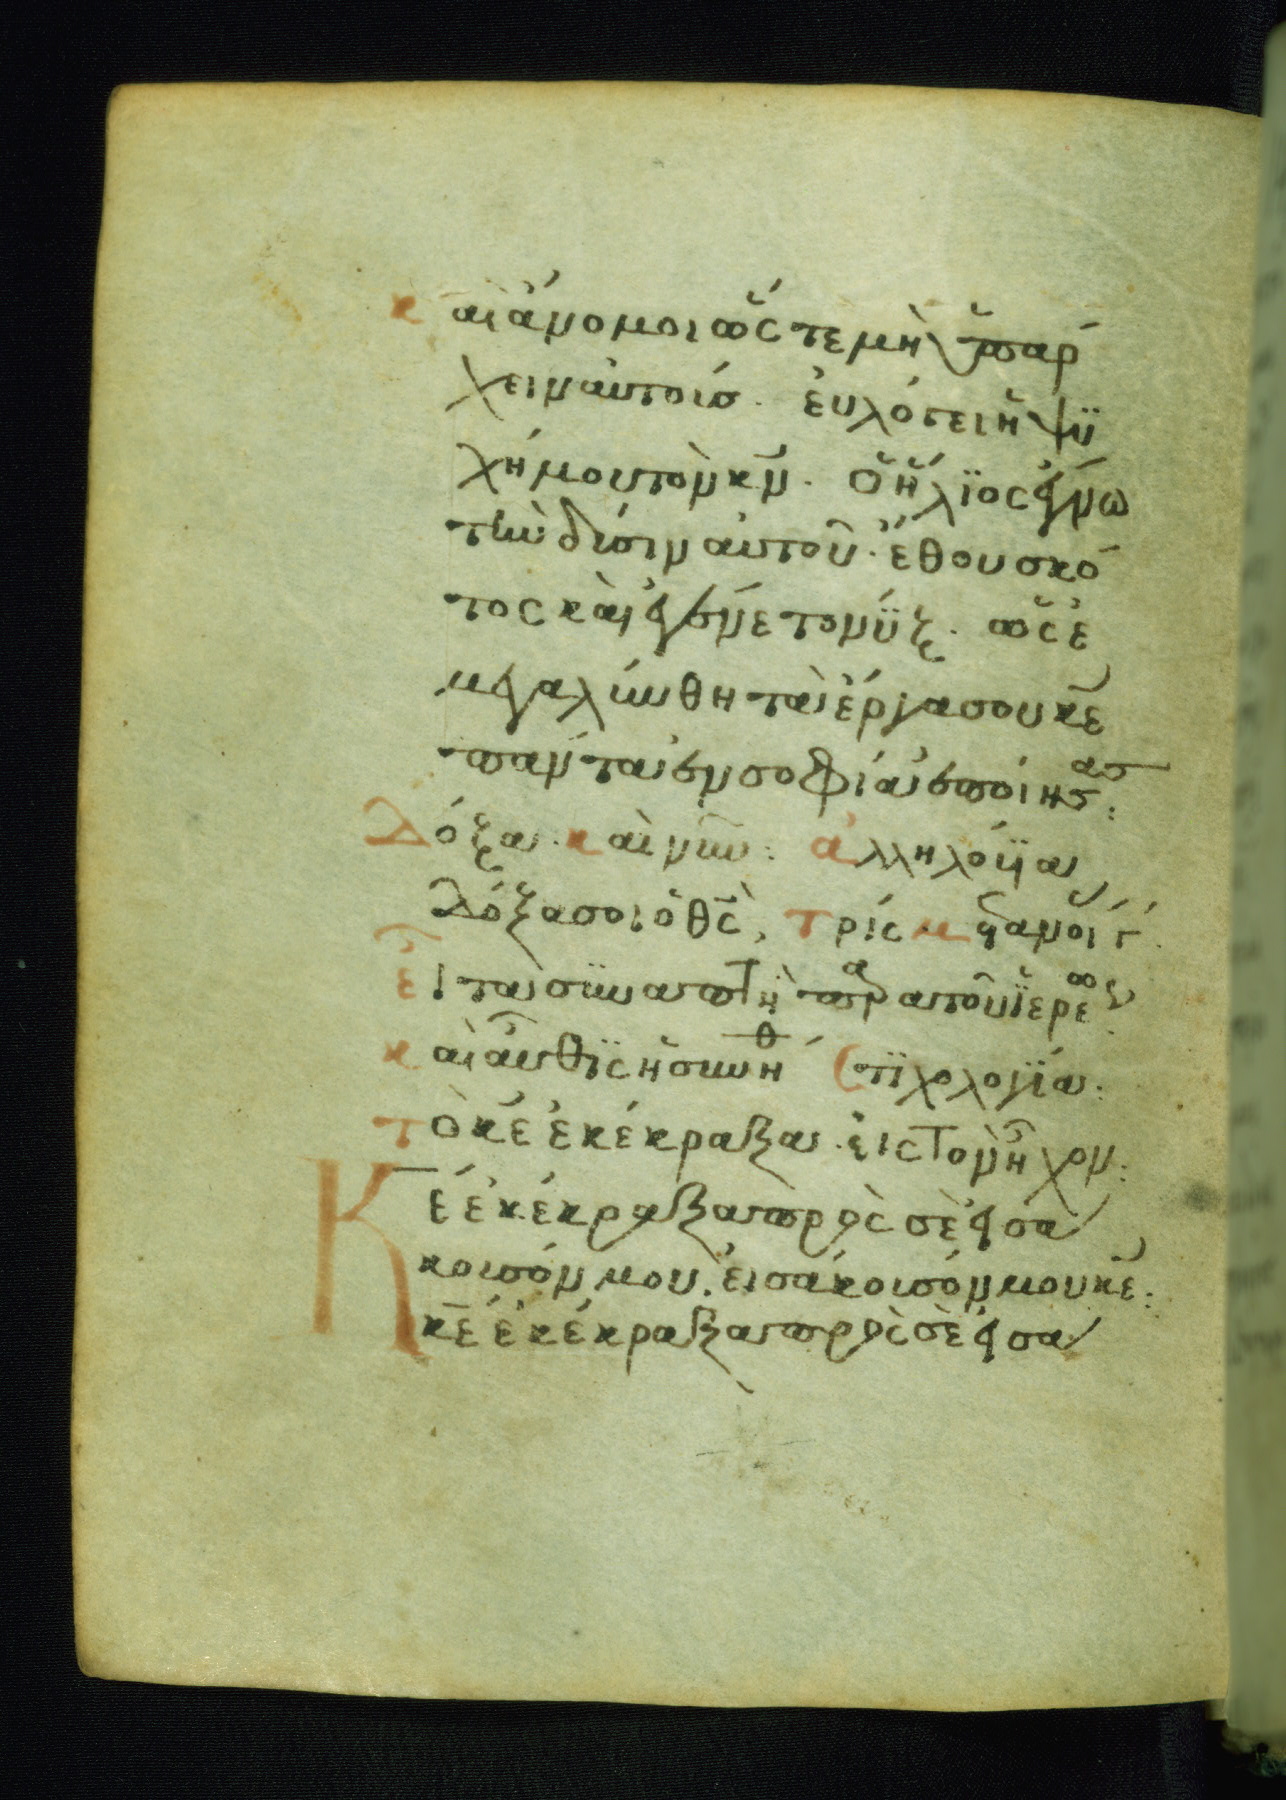 και ἄνομοι ὥς τε μὴ ὕπάρ
χειν αυτοίσ. ἐυλόγει ἡ ψϋ
χή μου τὸν κν̄. ὅ ἥλϊος ἔγνω
τὴν δύσιν ἀυτοῦ. ἔθου σκό
τος καὶ ἐγένετο νὺξ. ὥς ἐ
μεγαλύνθη τὰ ἔργα σου κε̄
πάντα ἐν σοφία ἐποίησασ:
Δόξα. και νῦν: ἀλληλόϋϊα
Δόξα σοι ὁ θς̄, τρίς μετανοί γ́.
εἶτα συναπτὴ παρα τοῦ ϊερέως
και ἄυθϊς ἡ συνήθ στϊχολογΐα:
τὸ κε̄ ἐκέκραξα. εἰς τὸν ἦχον:
Κε̄ ἐκέκραξα πρὸς σὲ εἰσά
κουσόν μου. εἰσάκουσόν μου κε̄:
κε̄ ἐκέκραξα πρὸς σὲ εἰσα